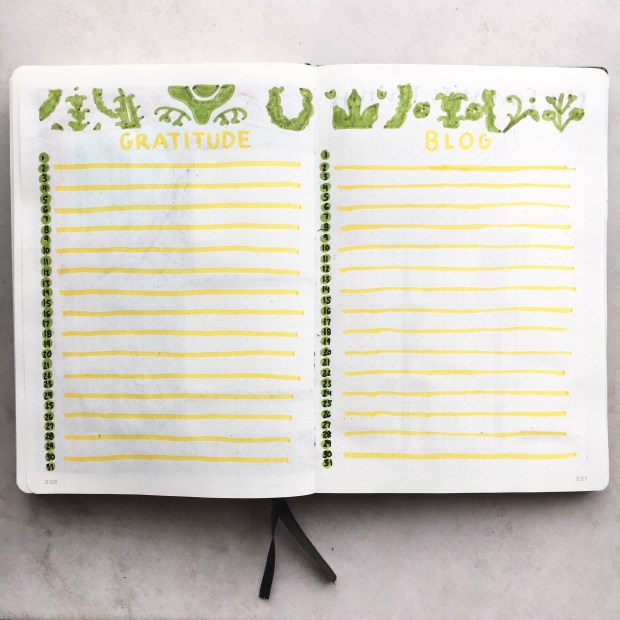 GRATITUDE
1
2
3
4
5
6
7
8
9
10
11
12
13
14
15
16
17
18
19
20
21
22
23
24
25
26
27
28
29
30
31
236
BLOG
1
2
3
4
5
6
7
8
9
10
11
12
13
14
15
16
17
18
19
20
21
22
23
24
25
26
27
28
29
30
31
237